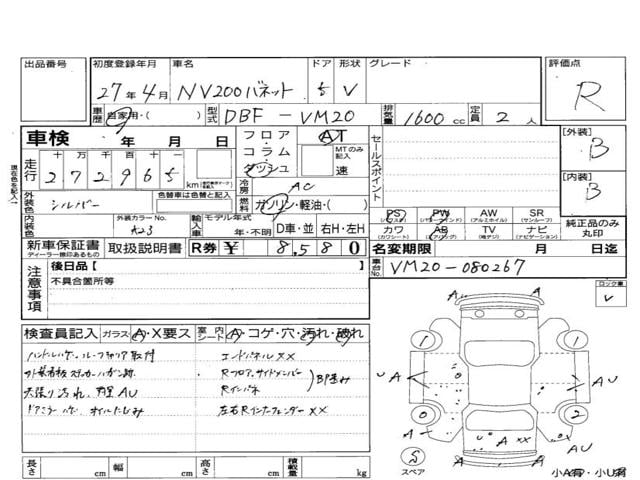 出品番号
初度登録年月
車名
ドア 形状
グレード
評価点
27年4月
NV200バネット
5 V
R
車歴 自家用・( )
型式
DBF-VM20
排気量
1600 cc
定員
2 人
車検 年 月 日
フロア・コラム・ダッシュ
AT
MTのみ記入
速
セールスポイント
[外装]
B
走行
十万千百十一
272965 km
冷房 AC
[内装]
B
現車色を記入→
外装色
シルバー
色替車は色替と記入
燃料
ガソリン・軽油・( )
PS
PW
AW
SR
(パワーウィンド)
(アルミホイル)
(サンルーフ)
純正品のみ丸印
内装色
外装カラーNo.
K23
輸入車
モデル年式
年・不明
D車・並
右H・左H
カワ
AB
TV
ナビ
(カワシート)
(エアバッグ)
(地デジ)
(ナビゲーション)
新車保証書
ディーラー捺印あるもの
取扱説明書
R券
¥ 8,580
名変期限 月 日迄
注意事項
後日品[ ]
不具合箇所等
車台No.
VM20-080267
ロック車
レ
検査員記入
ガラス A・X要ス
室内シート A・コゲ・穴・汚れ・破れ
取付
エンドパネルXX
Rフロア、サイドメンバー
BP歪み
天張り汚れ、
AU
Rインパネ
左右RインナーフェンダーXX
A
A
1
1
A
A
AU
0
2
A
A
XX
A
AU
スペア
A
A
小A有・小U有
長さ cm
幅 cm
高さ cm
積載量 kg